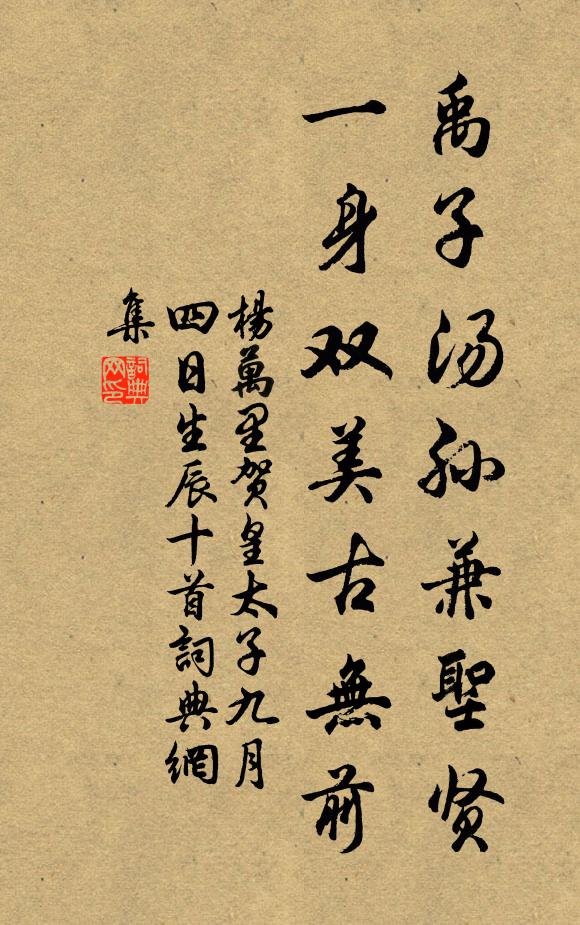 禹子汤孙兼聖贤
一身双美古無前
楊萬里贺皇太子九月
四日生辰十首詞典網
集
詞典
网印